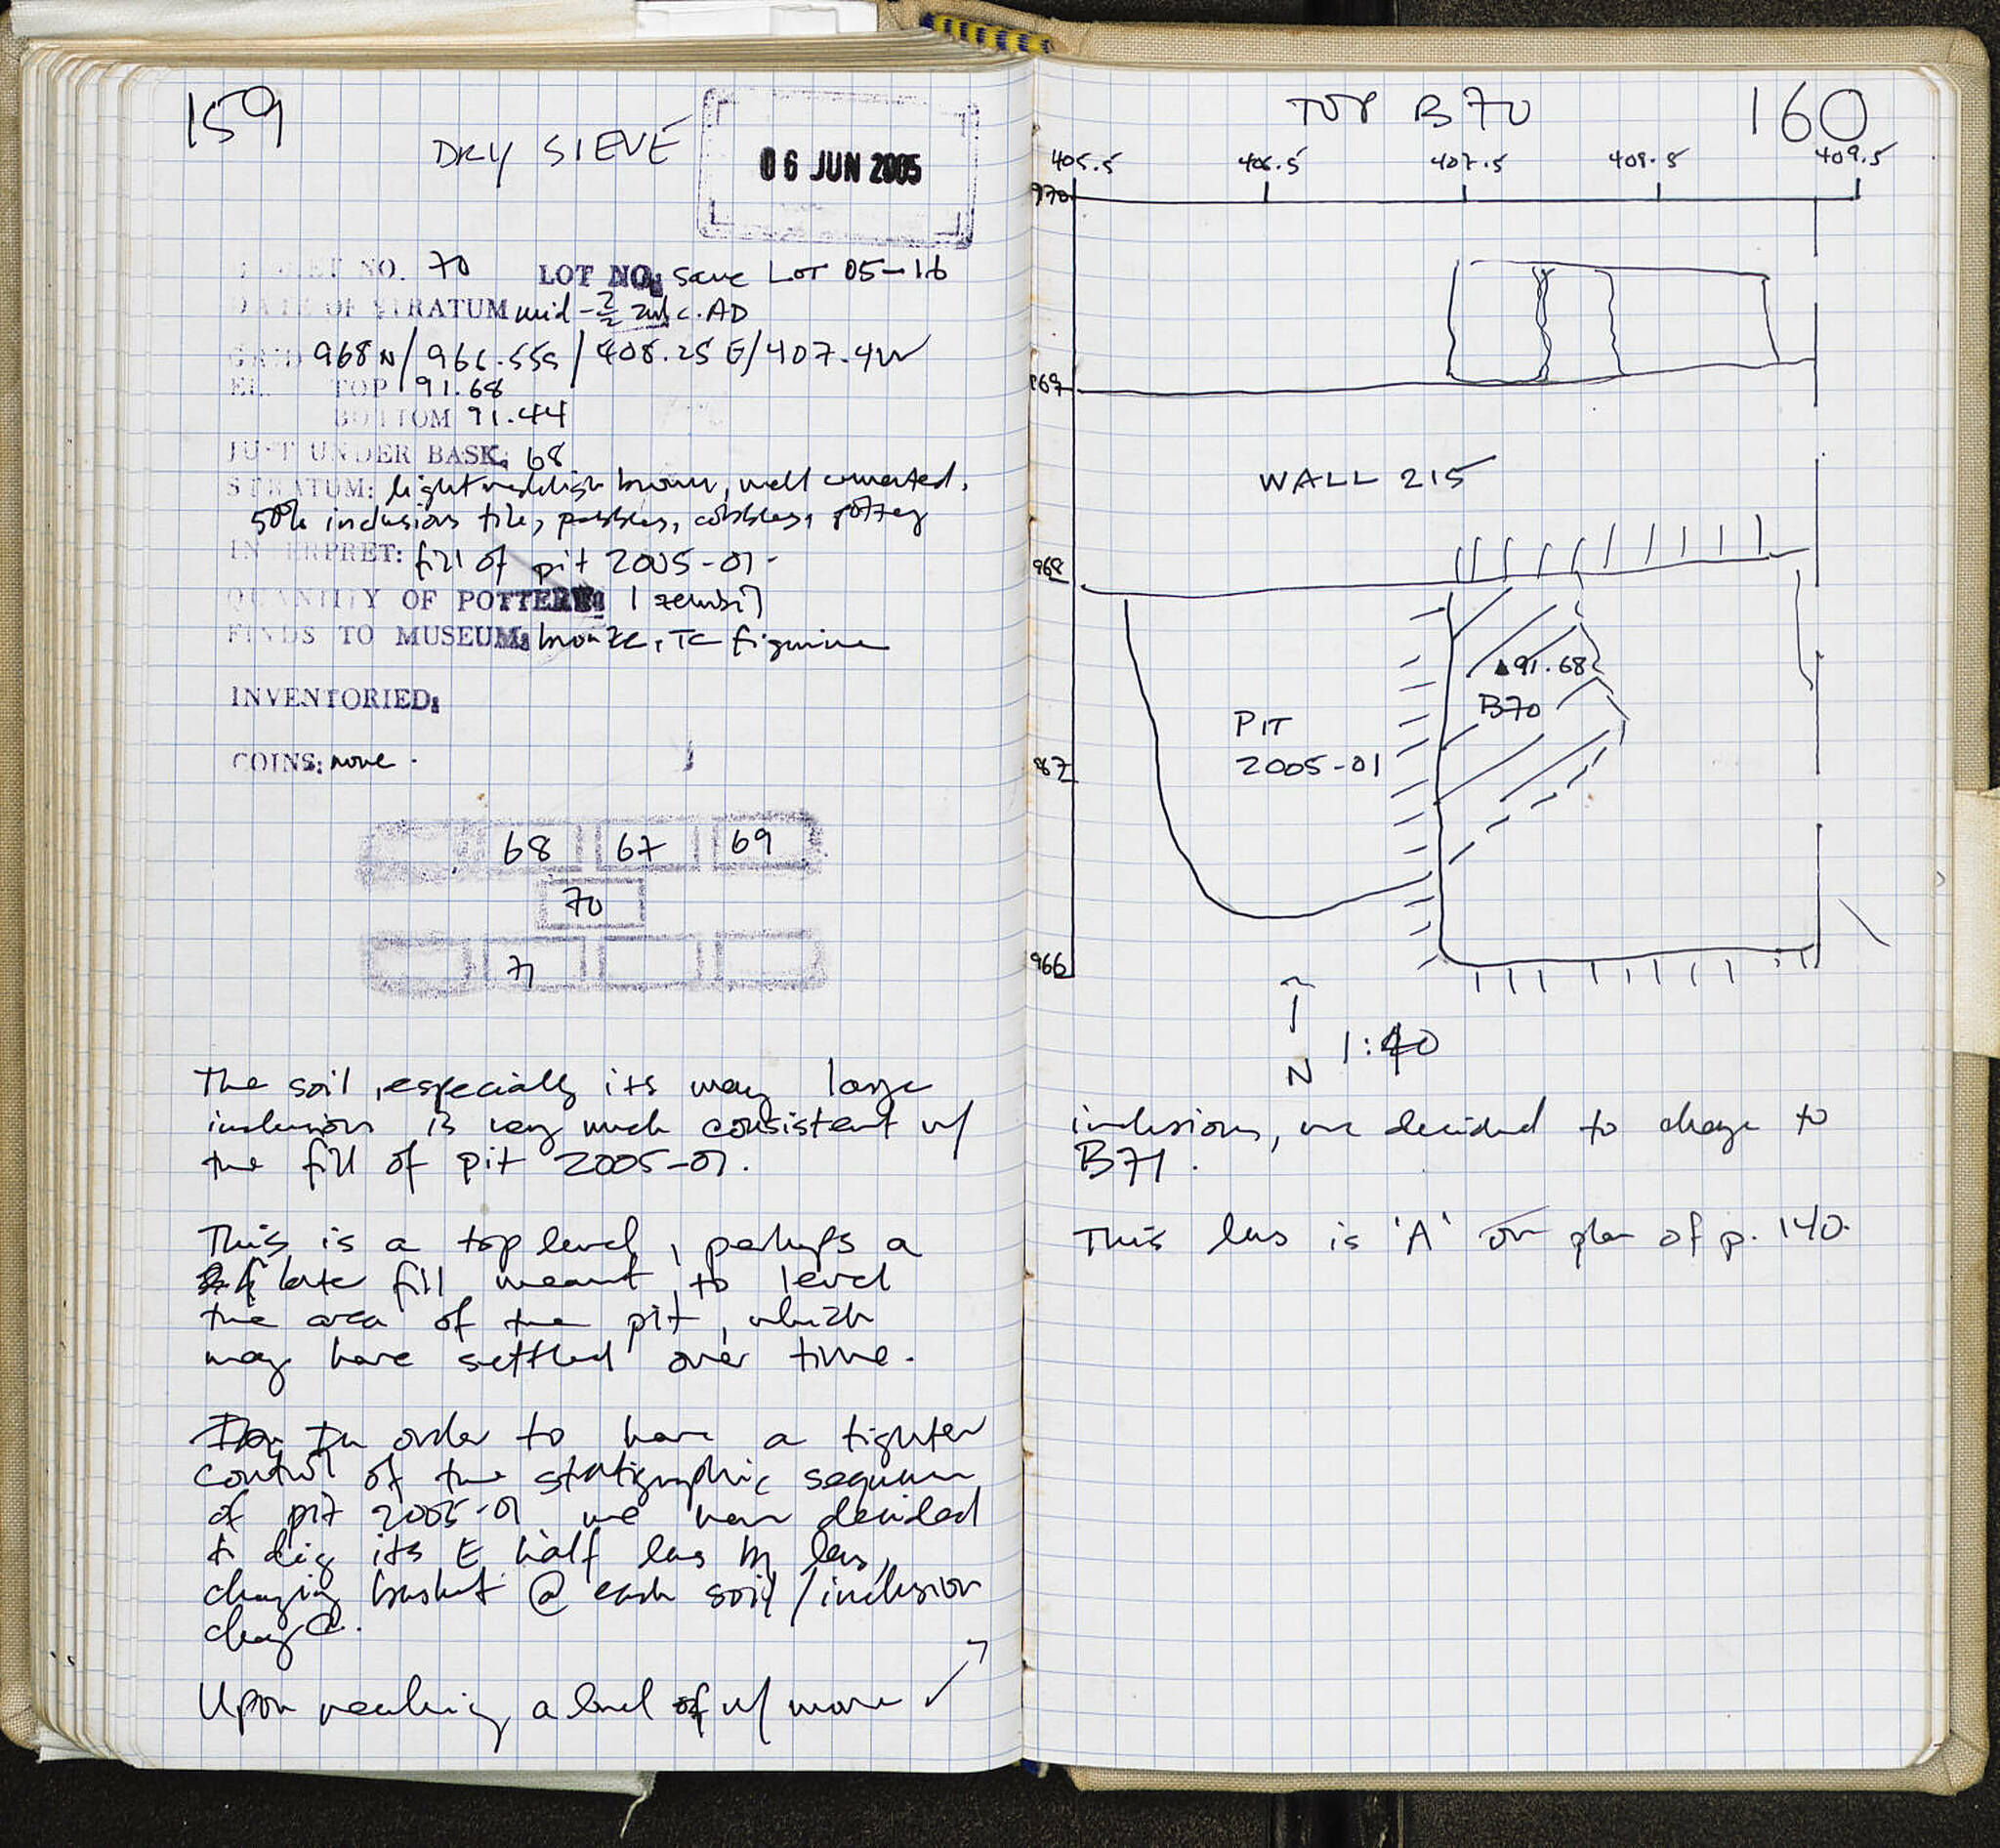 159
DRY SIEVE
06 JUN 2005
BASKET NO. 70 LOT NO: save LOT 05-16
DATE OF STRATUM mid - 2/2 2nd c. AD
GRID 968N/966.55S/408.25E/407.4W
EL. TOP 91.68
BOTTOM 91.44
JUST UNDER BASK: 68
STRATUM: light reddish brown, well cemented,
50% inclusions tile, pebbles, cobbles, pottery
INTERPRET: fill of pit 2005-01.
QUANTITY OF POTTERY: 1 zembil
FINDS TO MUSEUM: bronze, TC figurine
INVENTORIED:
COINS: none.
68 67 69
70
71
The soil, especially its many large
inclusions is very much consistent w/
the fill of pit 2005-01.
This is a top level, perhaps a
late fill meant to level
the area of the pit, which
may have settled over time.
In order to have a tighter
control of the stratigraphic sequence
of pit 2005-01 we have decided
to dig its E half lens by lens,
changing basket @ each soil/inclusion
change.
Upon reaching a level of w/ more
TOP B70
160
405.5 406.5 407.5 409.5 409.5
970
969
WALL 215
968
91.68
B70
PIT
2005-01
967
966
N
1:40
inclusions, we decided to change to
B71.
This lens is 'A' on plan of p. 140.